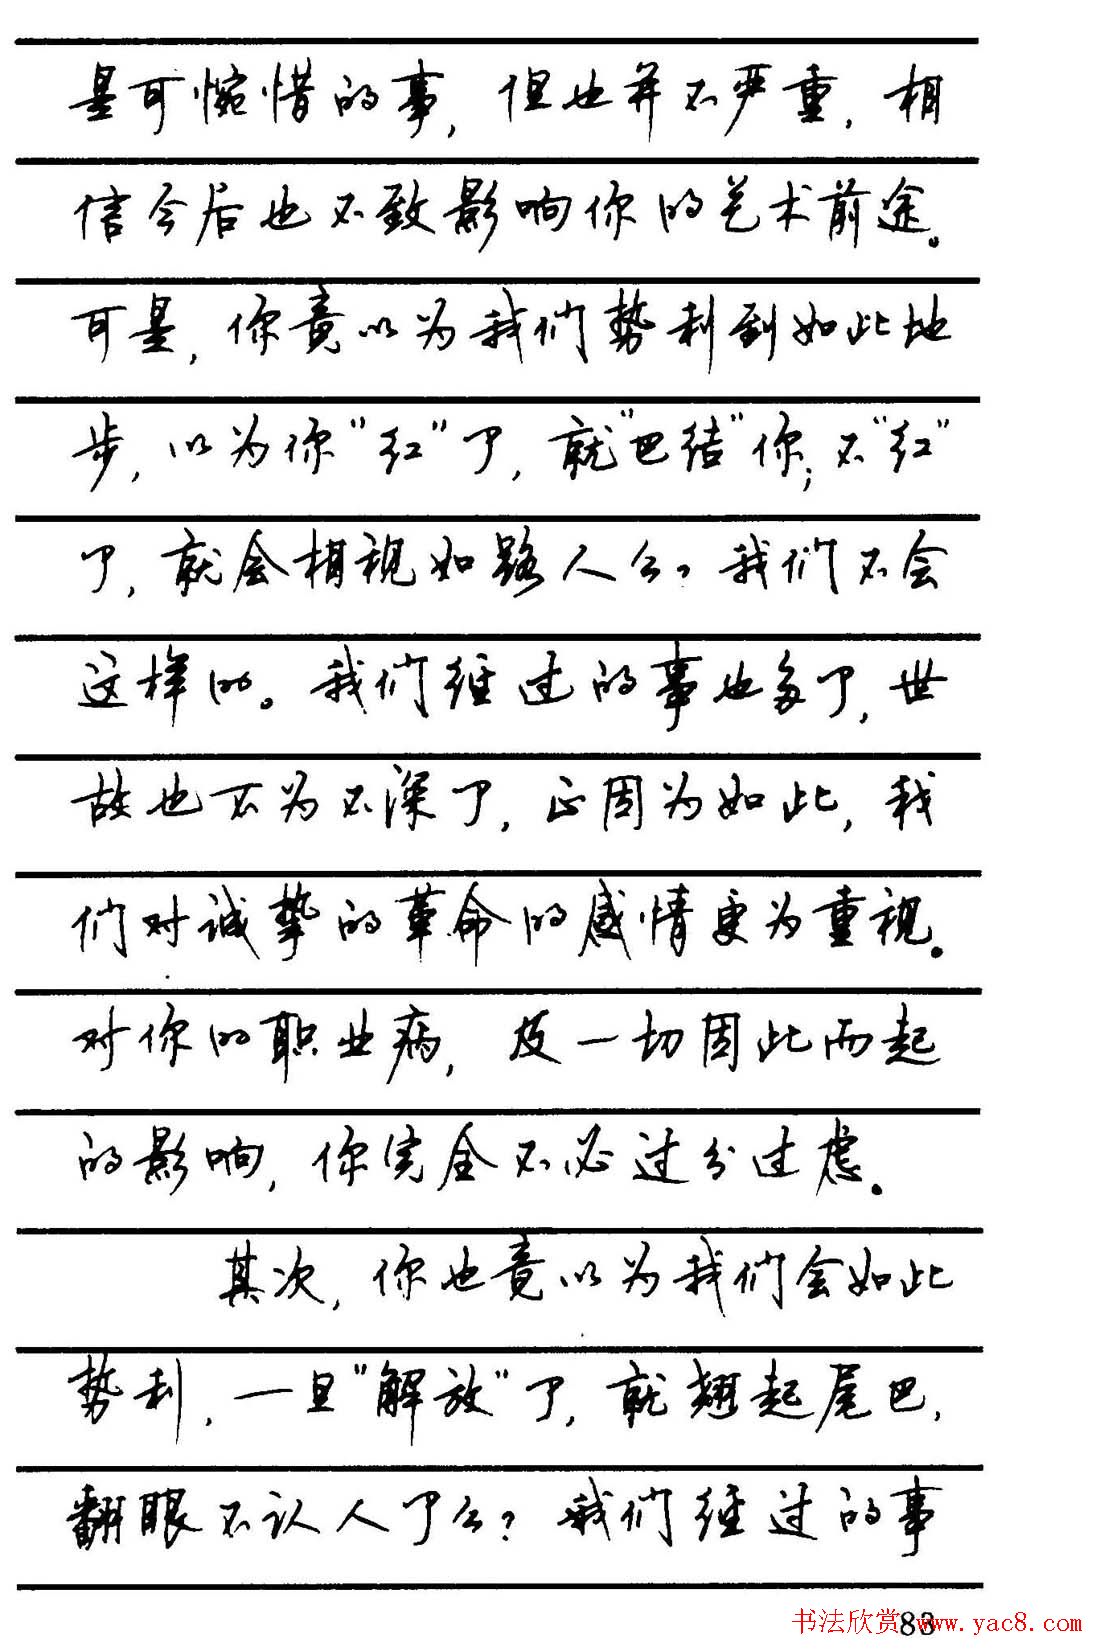 是可惋惜的事，但也并不严重，相
信今后也不致影响你的艺术前途。
可是，你竟以为我们势利到如此地
步，以为你“红”了，就“巴结”你；不“红”
了，就会相视如路人么？我们不会
这样的。我们经过的事也多了，世
故也不为不深了，正因为如此，我
们对诚挚的革命的感情更为重视。
对你的职业病，及一切因此而起
的影响，你完全不必过分过虑。
其次，你也竟以为我们会如此
势利，一旦“解放”了，就翘起尾巴，
翻眼不认人了么？我们经过的事
83
书法欣赏 www.yac8.com